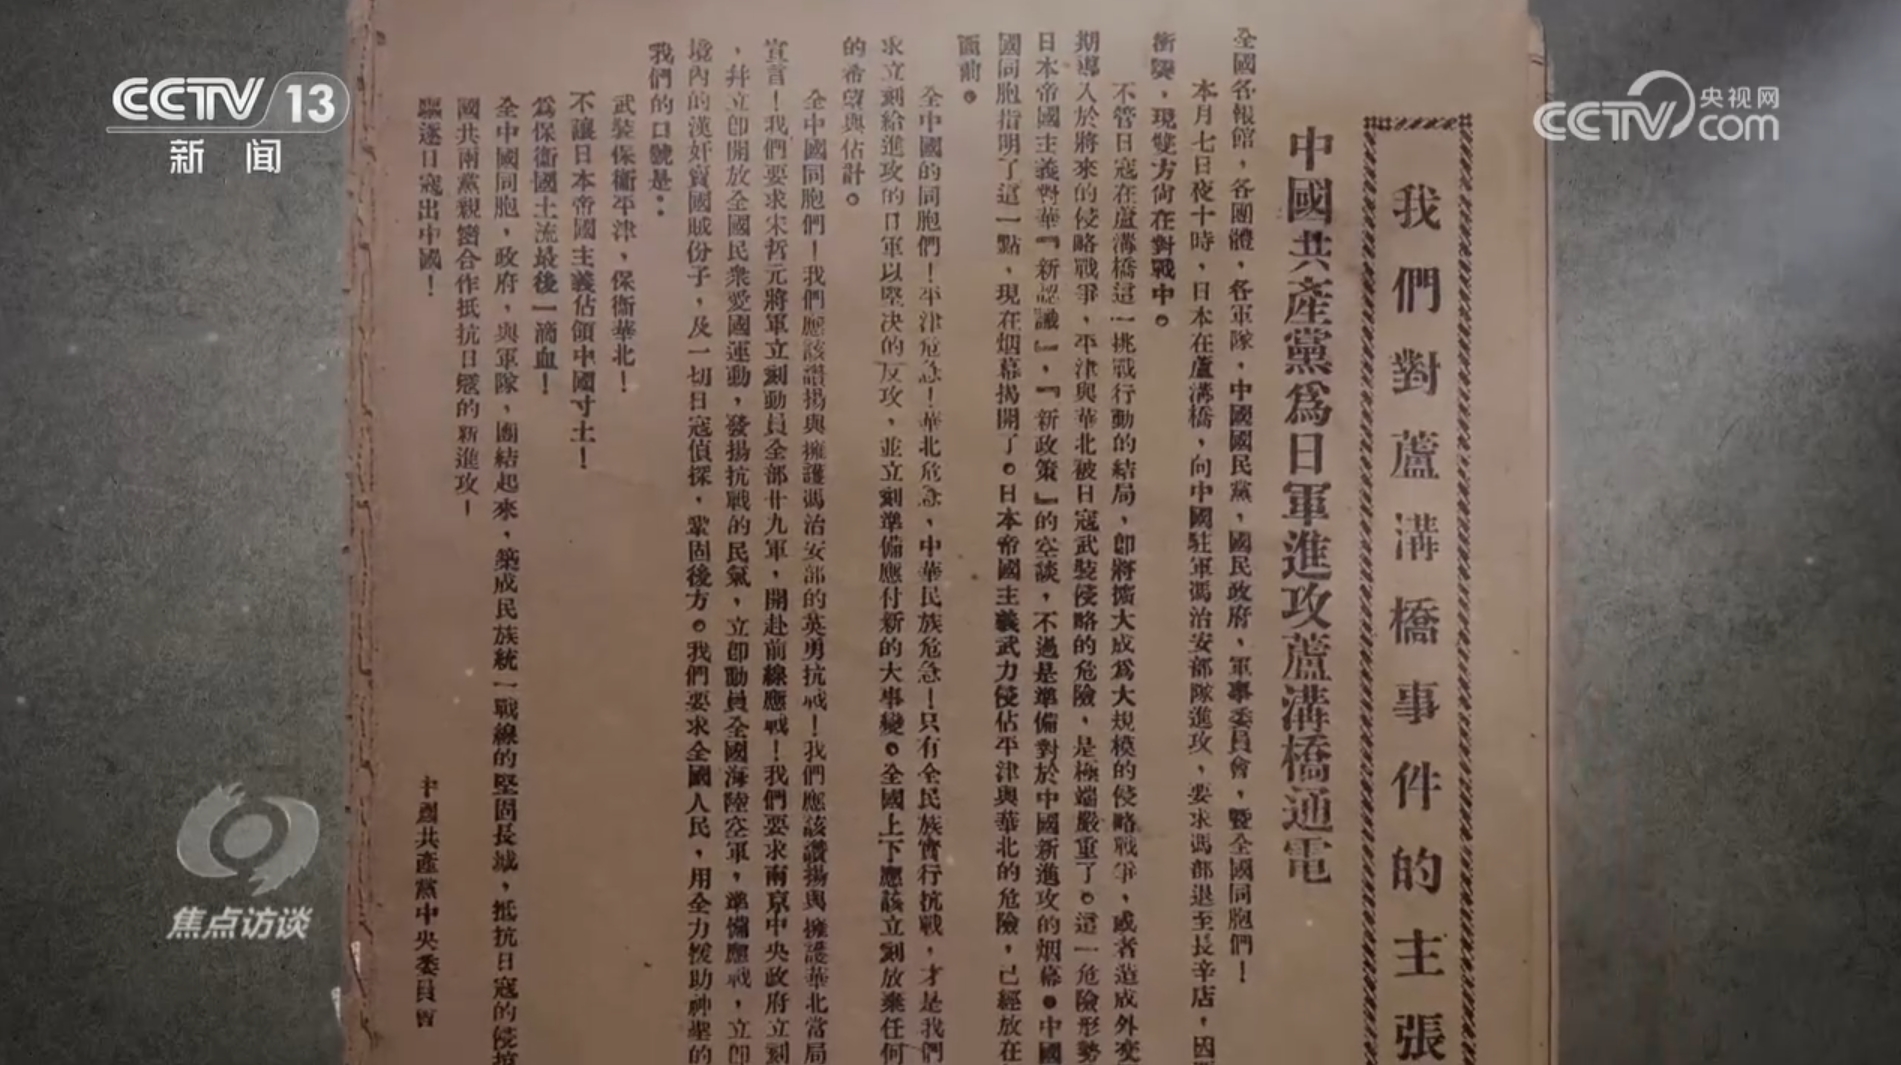 CCTV 13
新闻
CCTV com
央视网
焦点访谈
我們對蘆溝橋事件的主張
中國共產黨為日軍進攻蘆溝橋通電
全國各報館，各團體，各軍隊，中國國民黨，國民政府，軍事委員會，暨全國同胞們！
本月七日夜十時，日本在蘆溝橋，向中國駐軍馮治安部隊進攻，要求馮部退至長辛店，因
衝突，現雙方尚在對戰中。
不管日寇在蘆溝橋這一挑戰行動的結局，卽將擴大成為大規模的侵略戰爭，或者造成外交
期導入於將來的侵略戰爭，平津與華北被日寇武裝侵略的危險，是極端嚴重了。這一危險形勢
日本帝國主義對華『新認識』，『新政策』的空談，不過是準備對於中國新進攻的烟幕。中國
國同胞指明了這一點，現在烟幕揭開了。日本帝國主義武力侵佔平津與華北的危險，已經放在
面前。
全中國的同胞們！平津危急！華北危急，中華民族危急！只有全民族實行抗戰，才是我們
求立刻給進攻的日軍以堅決的反攻，並立刻準備應付新的大事變。全國上下應該立刻放棄任何
的希望與估計。
全中國同胞們！我們應該讚揚與擁護馮治安部的英勇抗戰！我們應該讚揚與擁護華北當局
宣言！我們要求宋哲元將軍立刻動員全部廿九軍，開赴前線應戰！我們要求南京中央政府立刻
，幷立卽開放全國民衆愛國運動，發揚抗戰的民氣，立卽動員全國海陸空軍，準備應戰，立卽
境內的漢奸賣國賊份子，及一切日寇偵探，鞏固後方。我們要求全國人民，用全力援助神聖的
我們的口號是：
武裝保衞平津，保衞華北！
不讓日本帝國主義佔領中國寸土！
為保衞國土流最後一滴血！
全中國同胞，政府，與軍隊，團結起來，築成民族統一戰線的堅固長城，抵抗日寇的侵掠
國共兩黨親密合作抵抗日寇的新進攻！
驅逐日寇出中國！
中國共產黨中央委員會